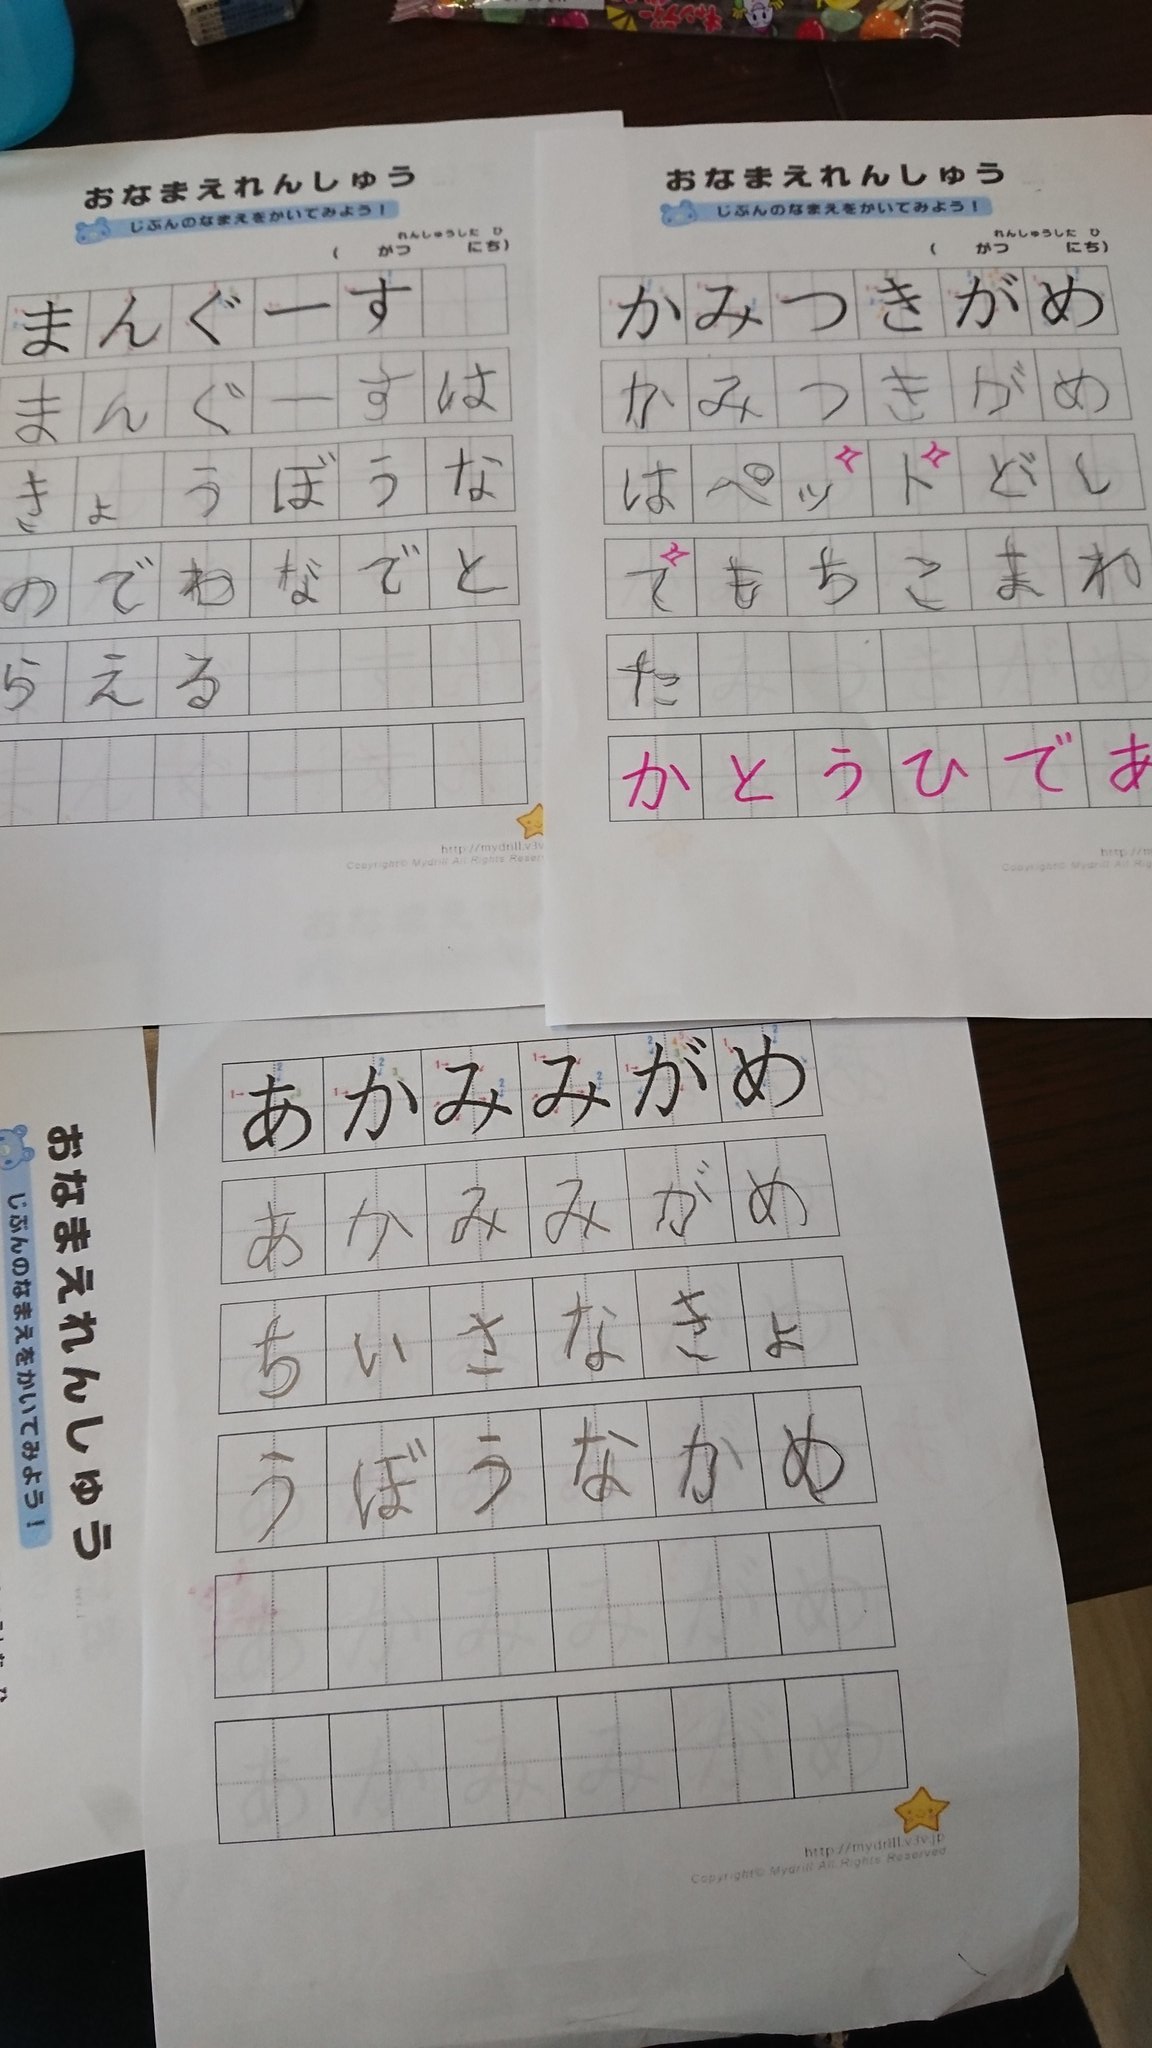 おなまえれんしゅう
じぶんのなまえをかいてみよう!
れんしゅうした ひ
( がつ にち)
まんぐーす
まんぐーすは
きょうぼうな
のでわなでと
らえる
http://mydrill.v3v
Copyright© Mydrill All Rights Reser
おなまえれんしゅう
じぶんのなまえをかいてみよう!
れんしゅうした ひ
( がつ にち)
かみつきがめ
かみつきがめ
はペットどし
てもちこまれ
た
かとうひであ
http://m
Copyright© Mydrill All Rig
あかみみがめ
あかみみがめ
ちいさなきょ
うぼうなかめ
http://mydrill.v3v.jp
Copyright© Mydrill All Rights Reserved
おなまえれんしゅう
じぶんのなまえをかいてみよう!